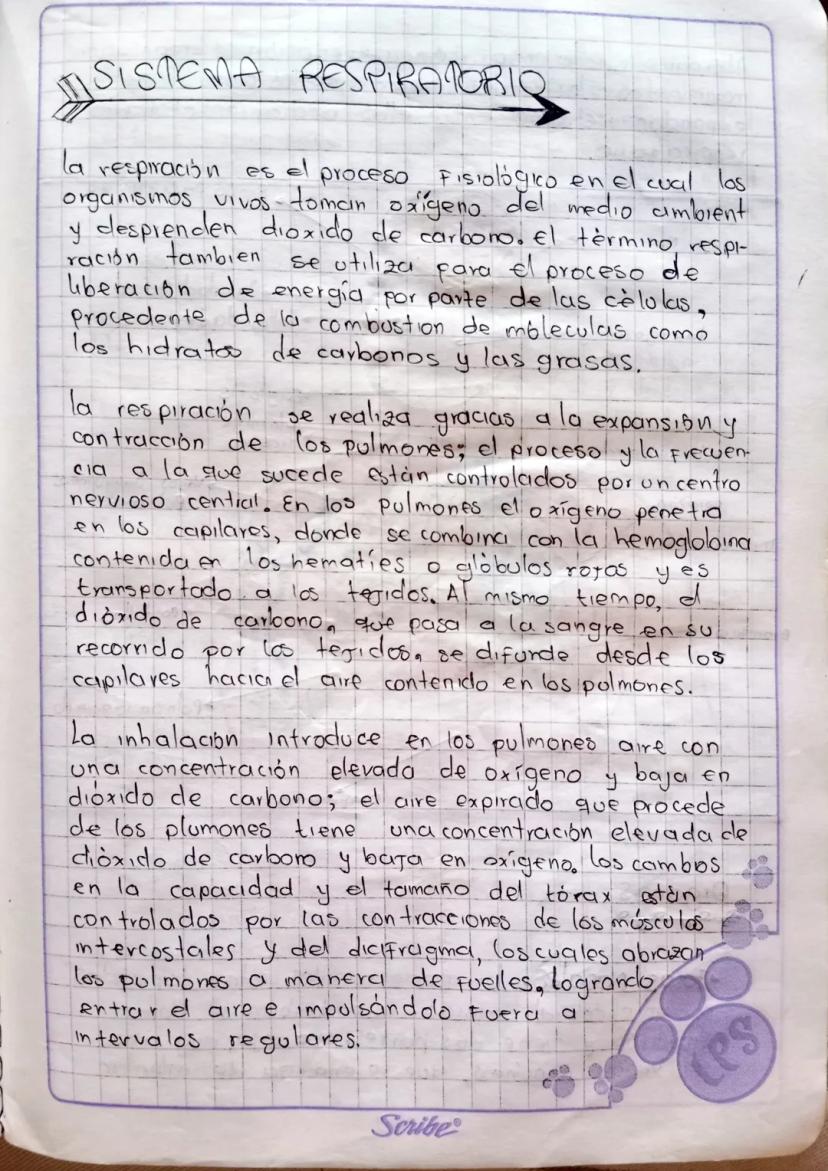 SISTEMA RESPIRATORIO
la respiración es el proceso Fisiológico en el cual los
organismos vivos toman oxígeno del medio ambient
y desprenden dioxido de carbono. El tèrmino respi-
ración tambien se utiliza para el proceso de
liberación de energía por parte de las cèlolas,
procedente de la combustion de mòleculas como
los hidratos de carbonos y las grasas.
la respiración se realiza gracias a la expansión y
contracción de los pulmones; el proceso y la Frecuen-
cia a la que sucede están controlados por un centro
nervioso central. En los pulmones el oxígeno penetra
en los capilares, donde se combina con la hemoglobina
contenida en los hematíes o glòbulos rojos y es
transportado a los tejidos. Al mismo tiempo, el
dióxido de carbono, que pasa a la sangre en su
recorrido por los tejidos, se difunde desde los
capilares hacia el aire contenido en los polmones.
La inhalación introduce en los pulmones aire con
una concentración elevada de oxígeno y baja en
dióxido de carbono; el aire expirado que procede
de los plumones tiene una concentración elevada de
dióxido de carbono y baja en oxígeno. los cambios
en la capacidad y el tamaño del tórax estàn
controlados por las contracciones de los músculos
intercostales y del diafragma, los cuales abrazan
los pulmones a manera de Fuelles, logrando
entrar el aire e impulsándolo Fuera a
intervalos regulares.
CPS
Scribe